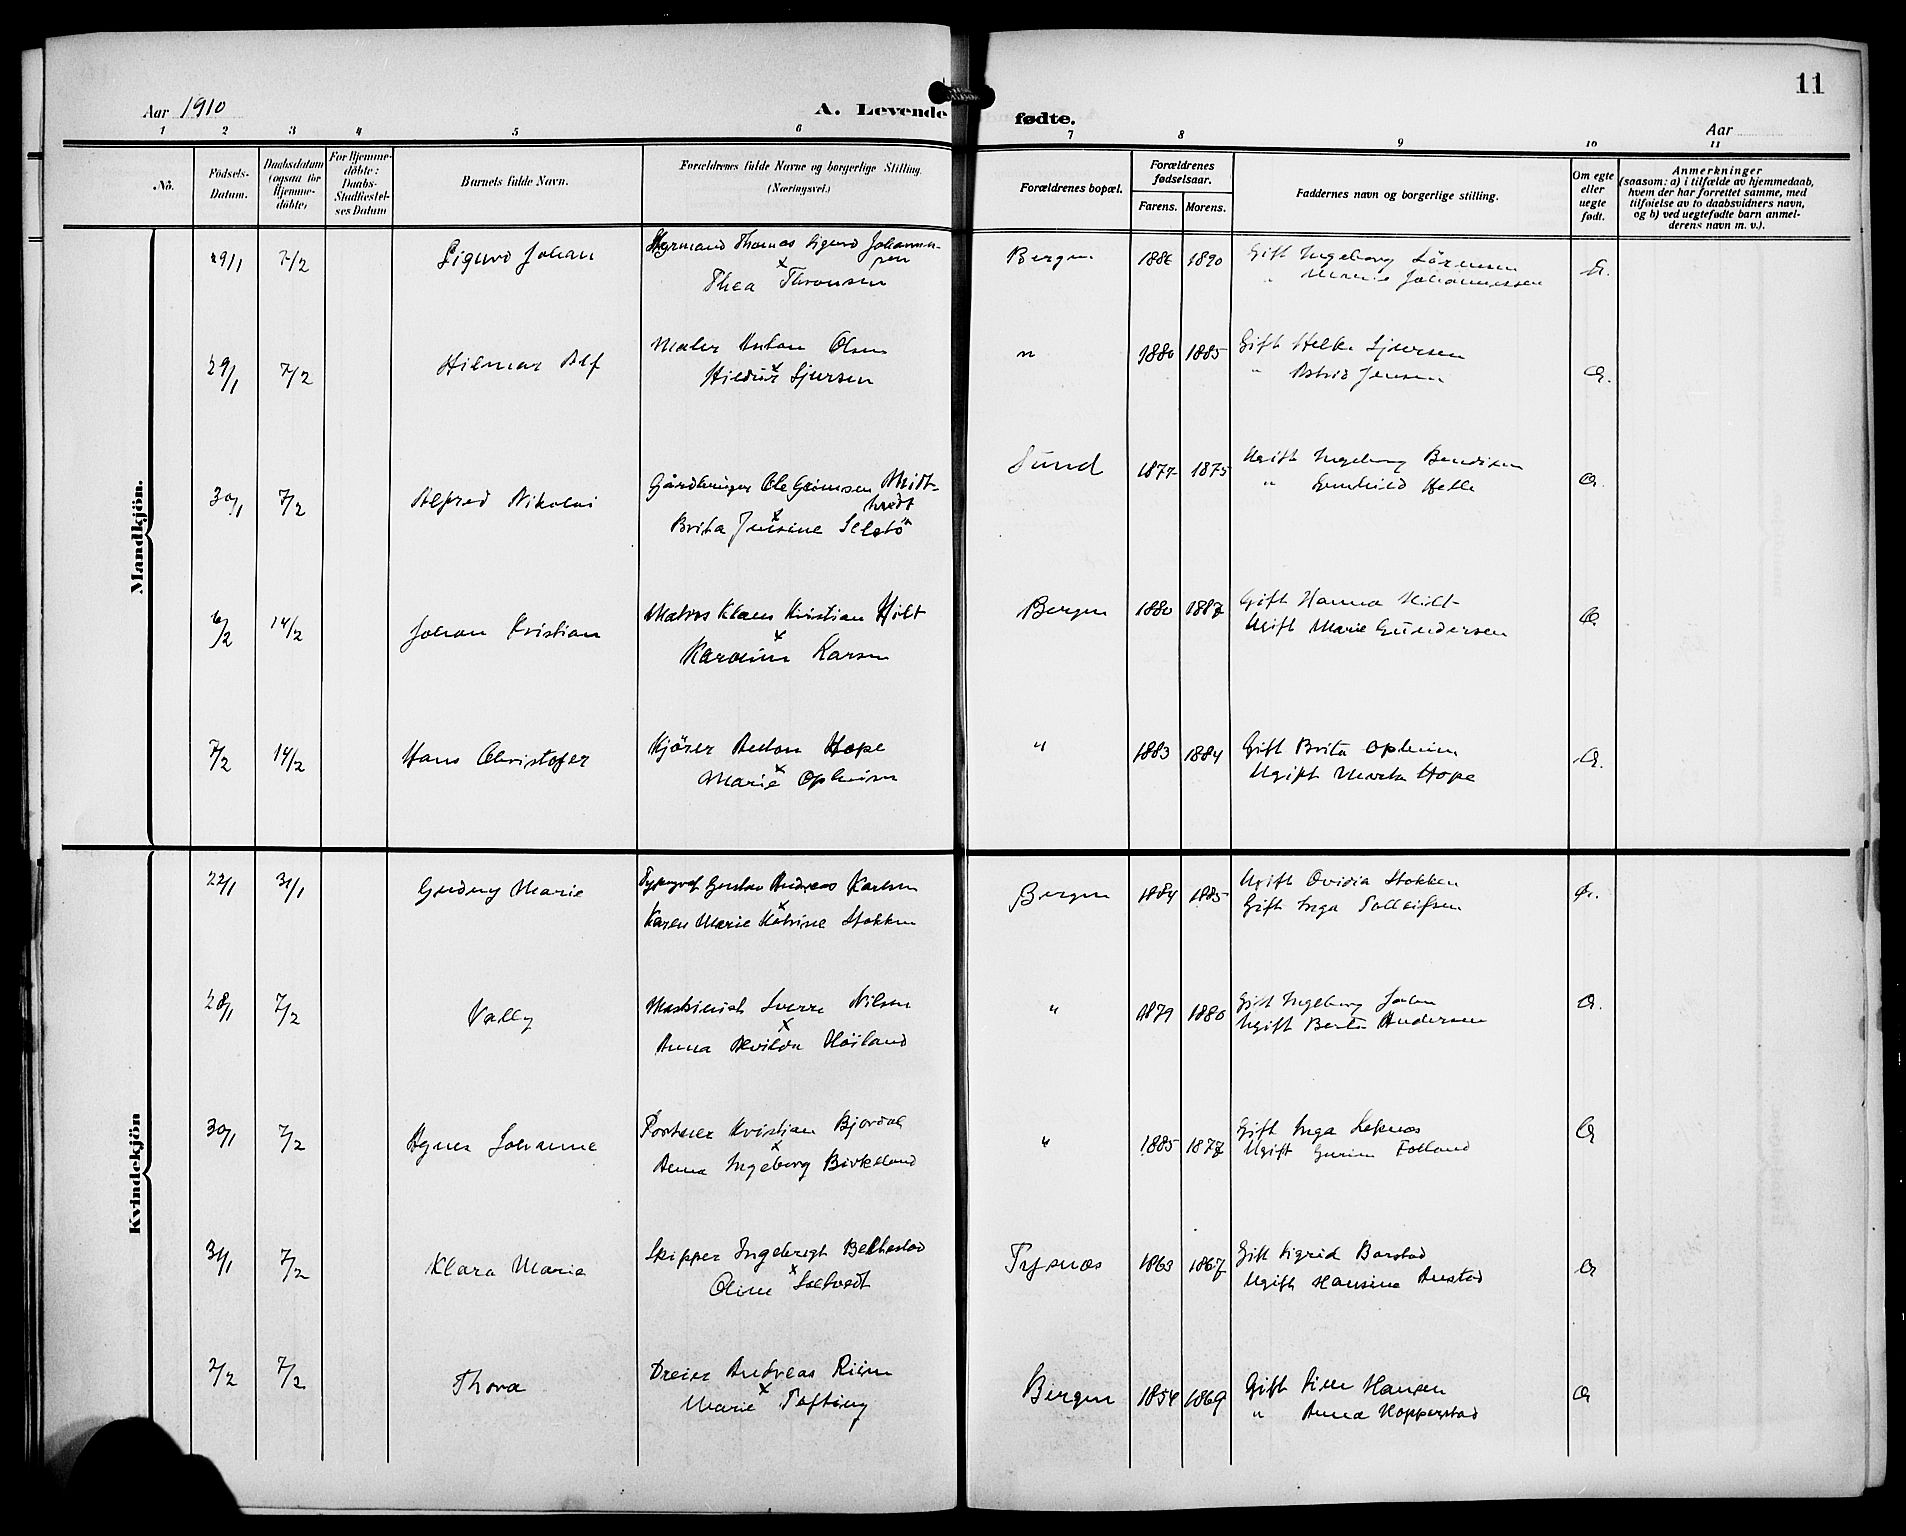 11
Aar 1910
A. Levende fødte.
Aar
1 2 3 4 5 6 7 8 9 10 11
No.
Fødsels-Datum.
Daabsdatum (ogsaa for Hjemme-døbte)
For Hjemme-døbte: Daabs-Stadfæstel-ses Datum
Barnets fulde Navn.
Forældrenes fulde Navne og borgerlige Stilling. (Næringsvei.)
Forældrenes bopæl.
Forældrenes fødselsaar.
Farens. Morens.
Faddernes navn og borgerlige stilling.
Om egte eller uegte født.
Anmerkninger
(saasom: a) i tilfælde av hjemmedaab,
hvem der har forrettet samme, med
tilføielse av to daabsvidners navn,
og b) ved uegtefødte barn anmel-
derens navn m. v.).
Mandkjön.
29/1 7/2 Sigurd Johan Styrmand Thomas Sigurd Johannes-sen Bergen 1886 1890 Gift Ingeborg Sörensen
x
Thea Thronsen " Marie Johannessen
29/1 7/2 Hilmar Alf Maler Anton Olsen " 1880 1885 Gift Helke Sjursen
x
Hildur Sjursen " Astrid Jensen
30/1 7/2 Alfred Nikolai Gårdbruger Ole Midt-tvedt Sund 1875 Ugift Ingeborg Bendixen
x
Brita Selstö " Gunhild Helle
6/2 14/2 Johan Kristian Matros Klaus Kristian Hilt Bergen 1880 1887 Gift Hanna Hilt
x
Karoline Larsen Ugift Marie Gundersen
7/2 14/2 Hans Christofer Kjörer Anton Hope " 1883 1884 Gift Brita Opheim
x
Marie Opheim Ugift Marta Hope
Kvindekjön
22/1 31/1 Gudny Marie Typograf Gustav Andreas Karlsen Bergen 1884 1885 Ugift Ovidia Stokken
x
Karen Marie Katrine Stokken Gift Inga Solleifsen
28/1 7/2 Vally Maskinist Sverre Nilsen " 1879 1880 Gift Ingeborg
x
Anna Alvilda Höiland Ugift Berta Andersen
30/1 7/2 Agnes Johanne Portner Kristian Bjordal " 1885 1877 Gift Inga Leknes
x
Anna Ingeborg Birkeland Ugift Gurine Folland
31/1 7/2 Klara Marie Skipper Ingebrigt Belthestad Tysnæs 1863 1867 Gift Sigrid Barstad
x
Oline Sætvedt Ugift Hansine Anstad
2/2 7/2 Thora Dreier Andreas Riim Bergen 1854 1869 Gift Hansen
x
Marie Tofting " Anna Hopperstad